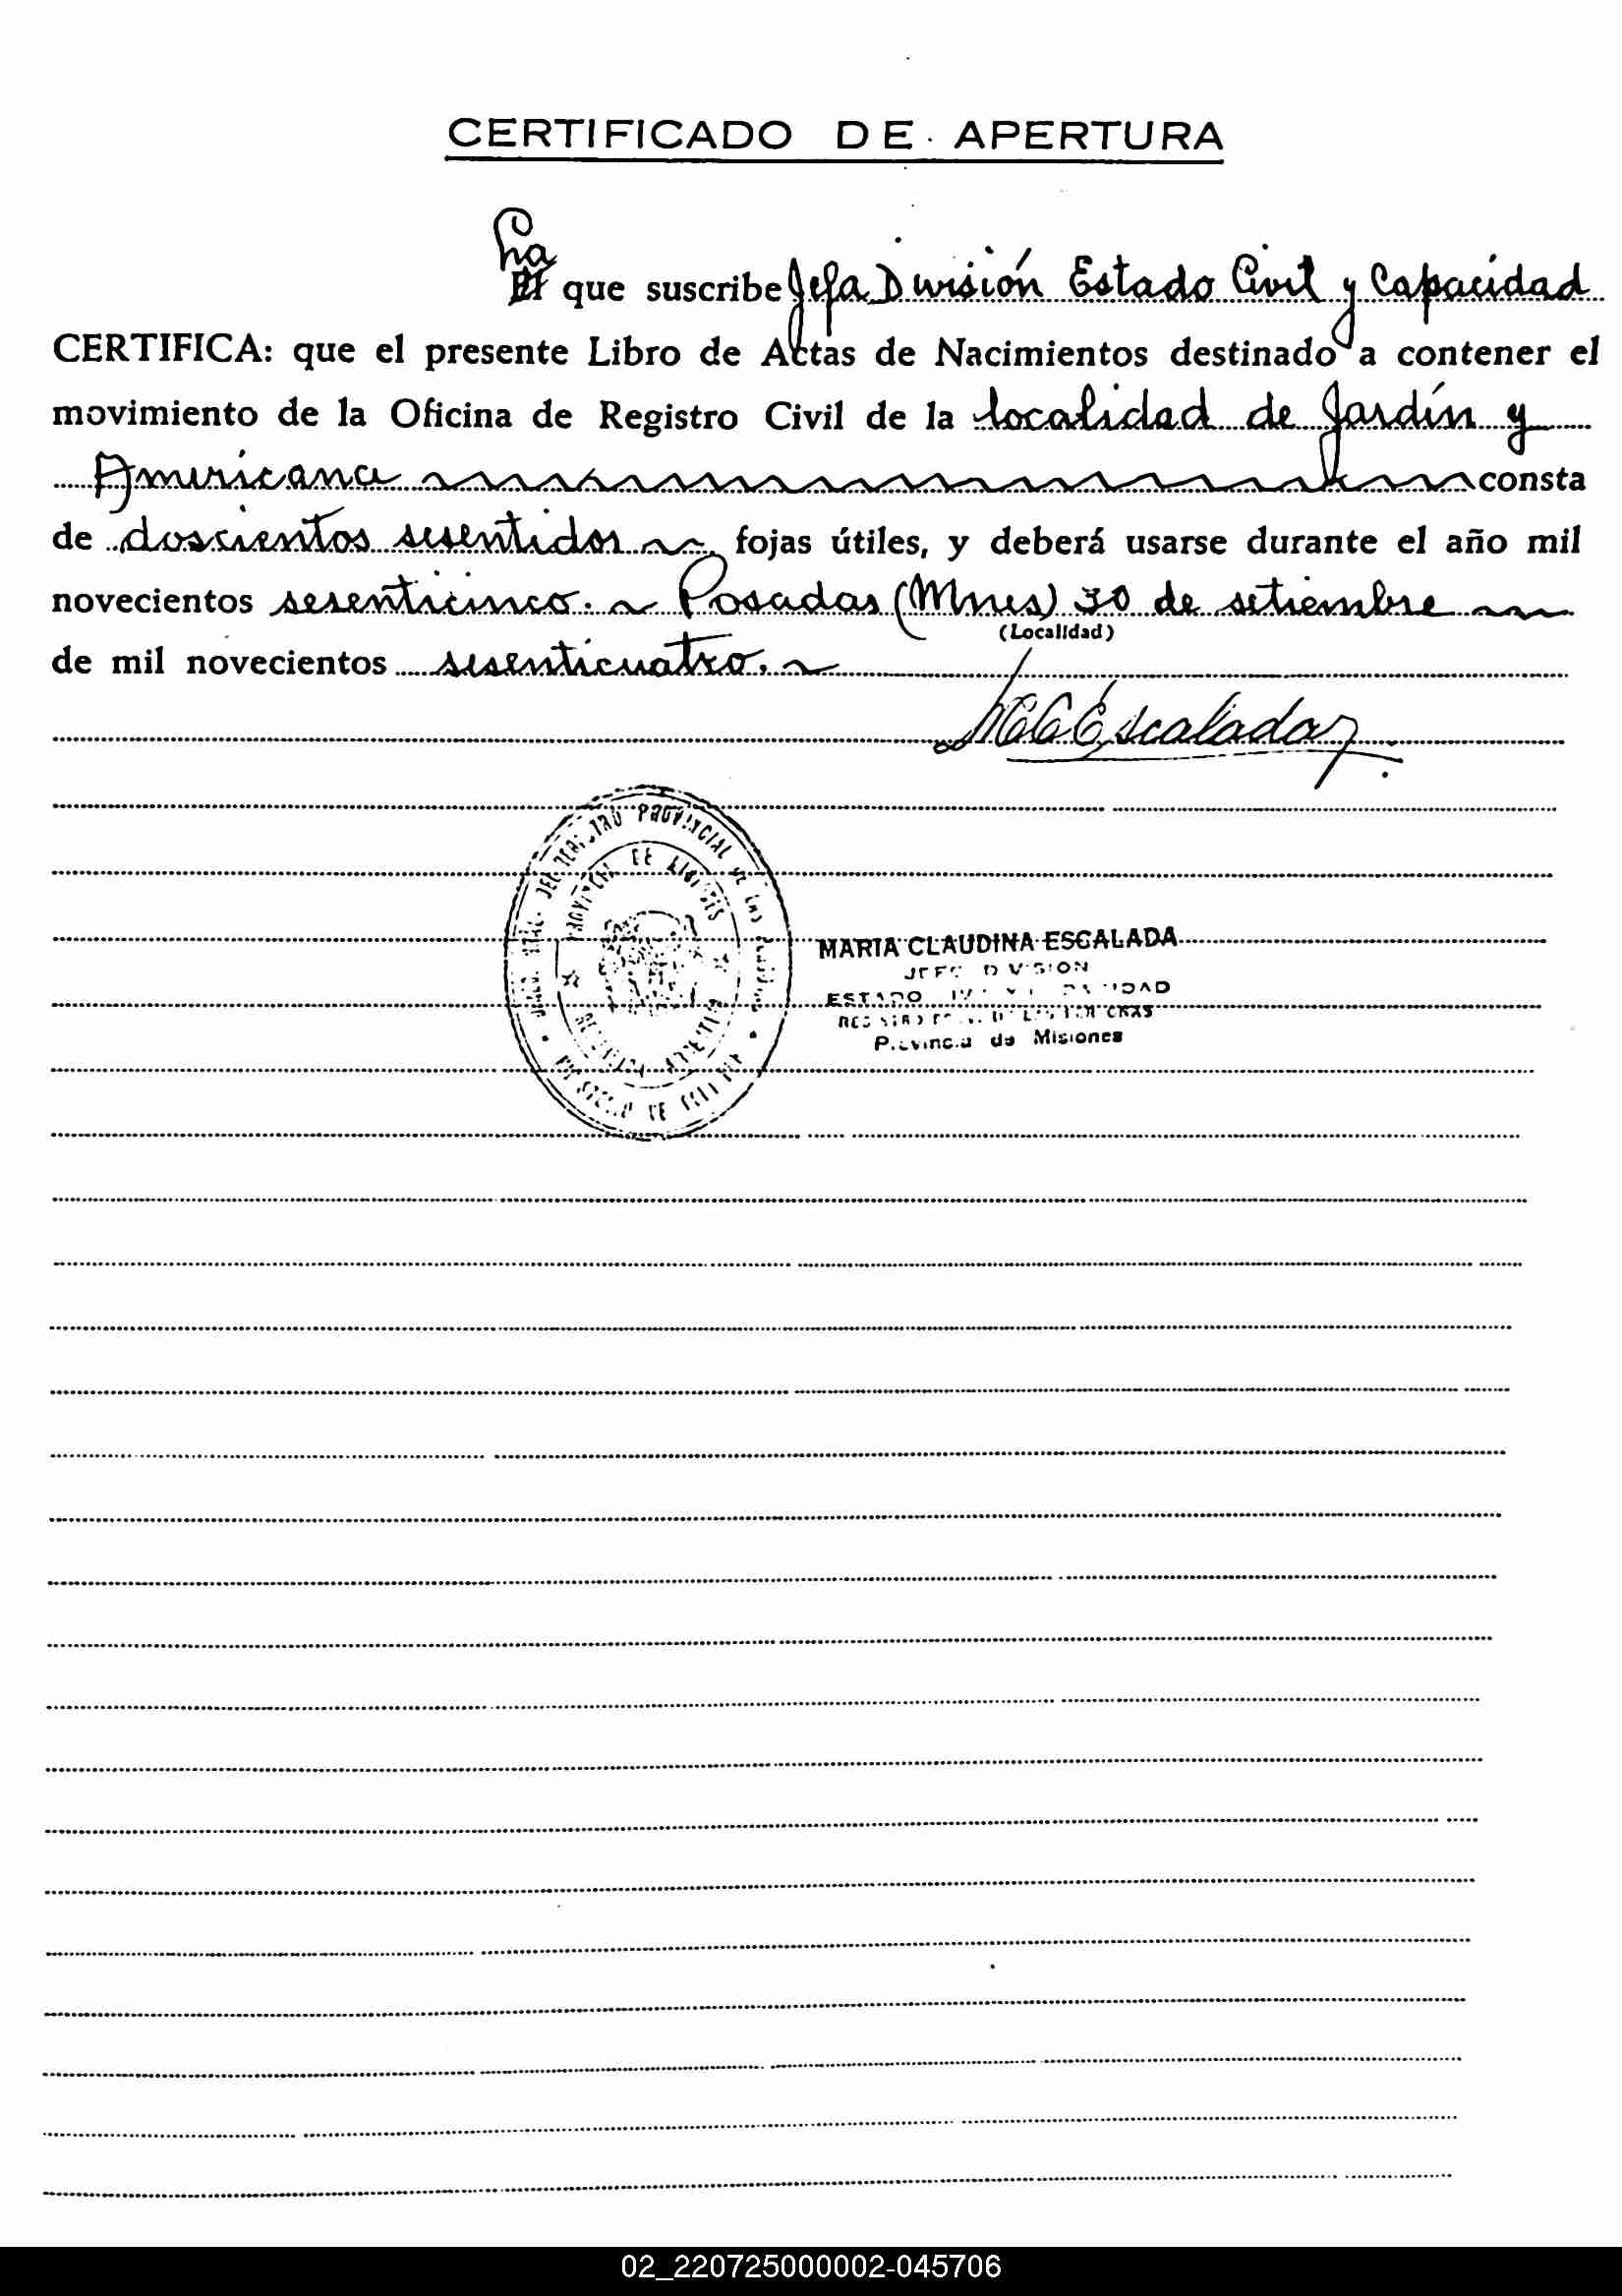 CERTIFICADO DE APERTURA
La
El que suscribe Jefa División Estado Civil y Capacidad
CERTIFICA: que el presente Libro de Actas de Nacimientos destinado a contener el
movimiento de la Oficina de Registro Civil de la localidad de Jardín y
Americana consta
de doscientos sesentidos fojas útiles, y deberá usarse durante el año mil
novecientos sesenticinco. Posadas (Mnes) 30 de setiembre
(Localidad)
de mil novecientos sesenticuatro.
MCEscalada
PROVINCIAL DE LAS
DE
MARIA CLAUDINA ESCALADA
DIVISION
ESTADO
Provincia de Misiones
02_220725000002-045706